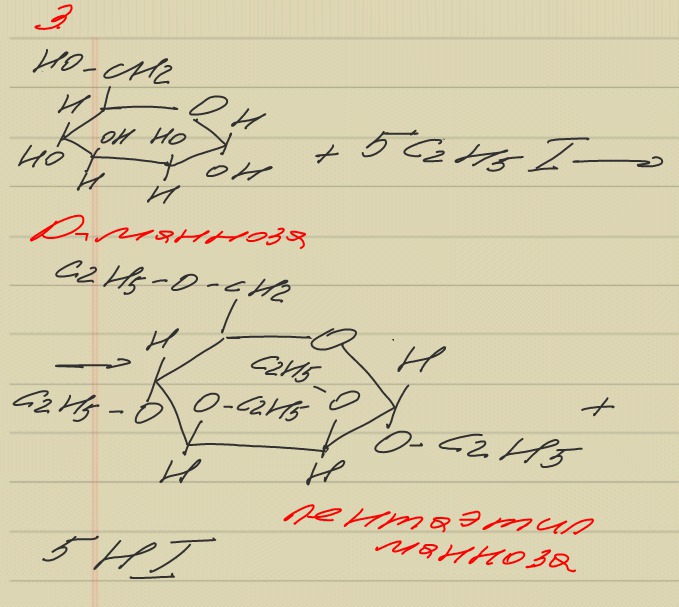 3
HO-CH2
H O H
OH HO
HO OH
H H
+ 5C2H5I →
D-манноза
C2H5-O-CH2
H O H
C2H5
→
C2H5-O O-C2H5 -O +
O-C2H5
H H
5HI
пентаэтил
манноза